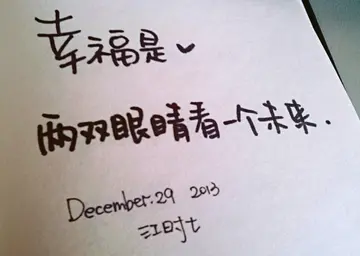 幸福是
两双眼睛看一个未来.
December.29 2013